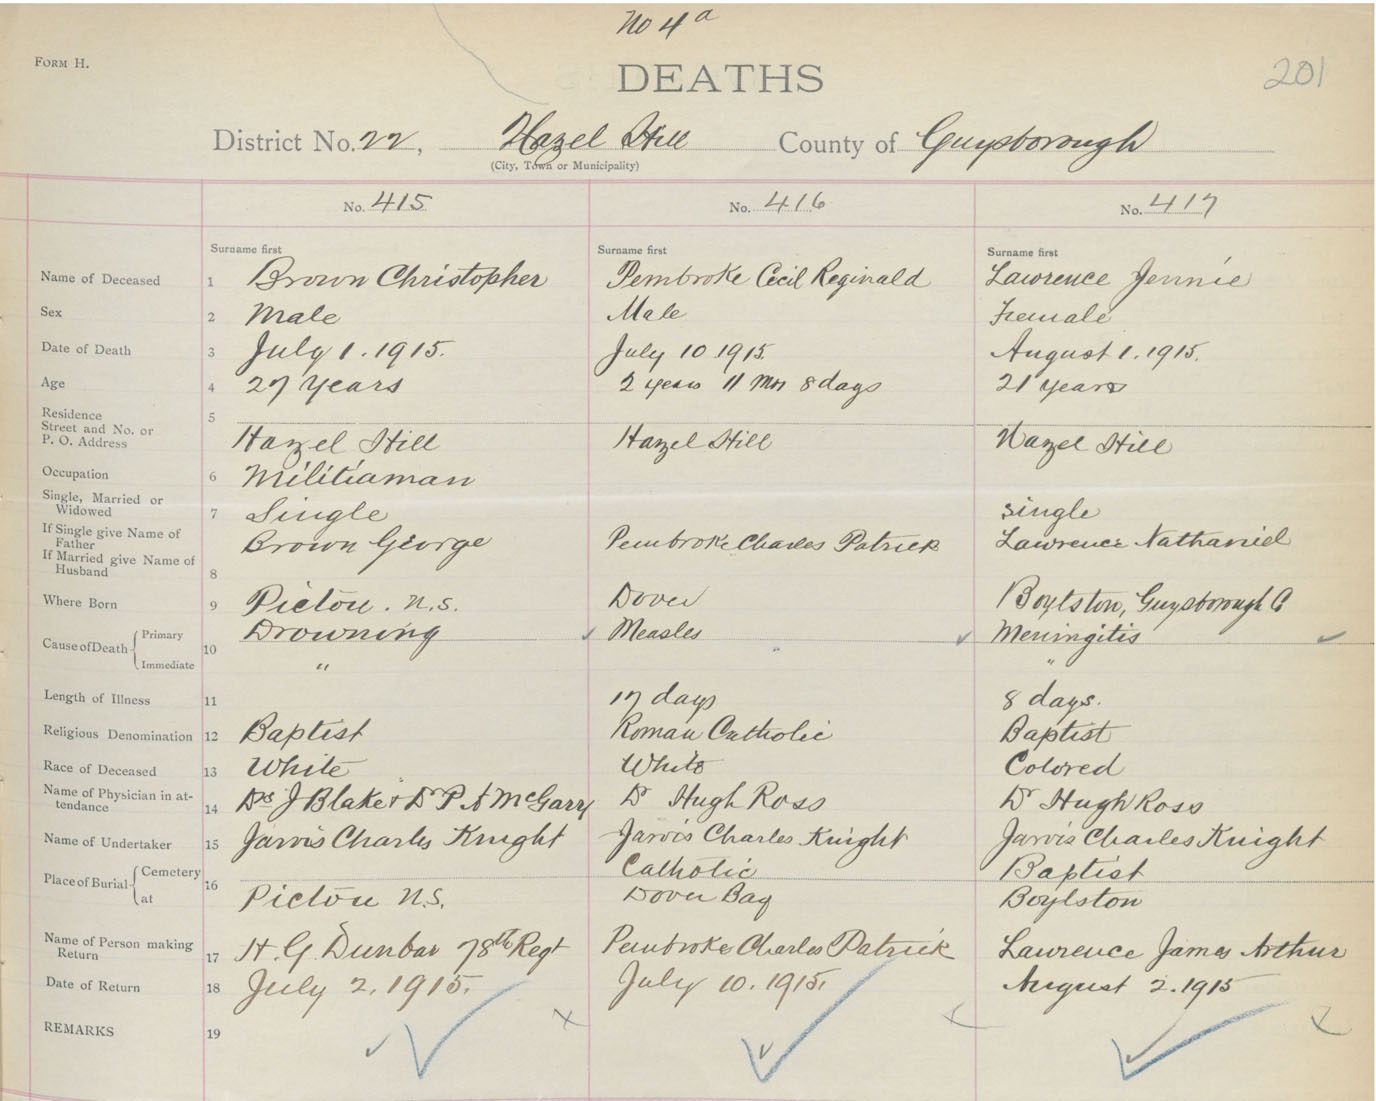 No 4 a
FORM H.
DEATHS
201
District No. 22, Hazel Hill County of Guysborough
(City, Town or Municipality)
No. 415 No. 416 No. 417
Surname first Surname first Surname first
Name of Deceased 1 Brown Christopher Pembroke Cecil Reginald Lawrence Jennie
Sex 2 Male Male Female
Date of Death 3 July 1. 1915. July 10 1915. August 1. 1915.
Age 4 27 Years 2 years 11 Mos 8 days 21 years
Residence 5
Street and No. or
P. O. Address Hazel Hill Hazel Hill Hazel Hill
Occupation 6 Militiaman
Single, Married or
Widowed 7 Single single
If Single give Name of
Father Brown George Pembroke Charles Patrick Lawrence Nathaniel
If Married give Name of
Husband 8
Where Born 9 Pictou. N.S. Dover Boylston, Guysborough C
Cause of Death Primary 10 Drowning Measles Meningitis
Immediate " " "
Length of Illness 11 17 days 8 days.
Religious Denomination 12 Baptist Roman Catholic Baptist
Race of Deceased 13 White White Colored
Name of Physician in at-
tendance 14 Drs J Blake & Dr P A McGarry Dr Hugh Ross Dr Hugh Ross
Name of Undertaker 15 Jarvis Charles Knight Jarvis Charles Knight Jarvis Charles Knight
Place of Burial Cemetery 16 Catholic Baptist
at Pictou N.S. Dover Bay Boylston
Name of Person making
Return 17 H. G. Dunbar 78th Regt Pembroke Charles Patrick Lawrence James Arthur
Date of Return 18 July 2, 1915. July 10. 1915. August 2. 1915
REMARKS 19